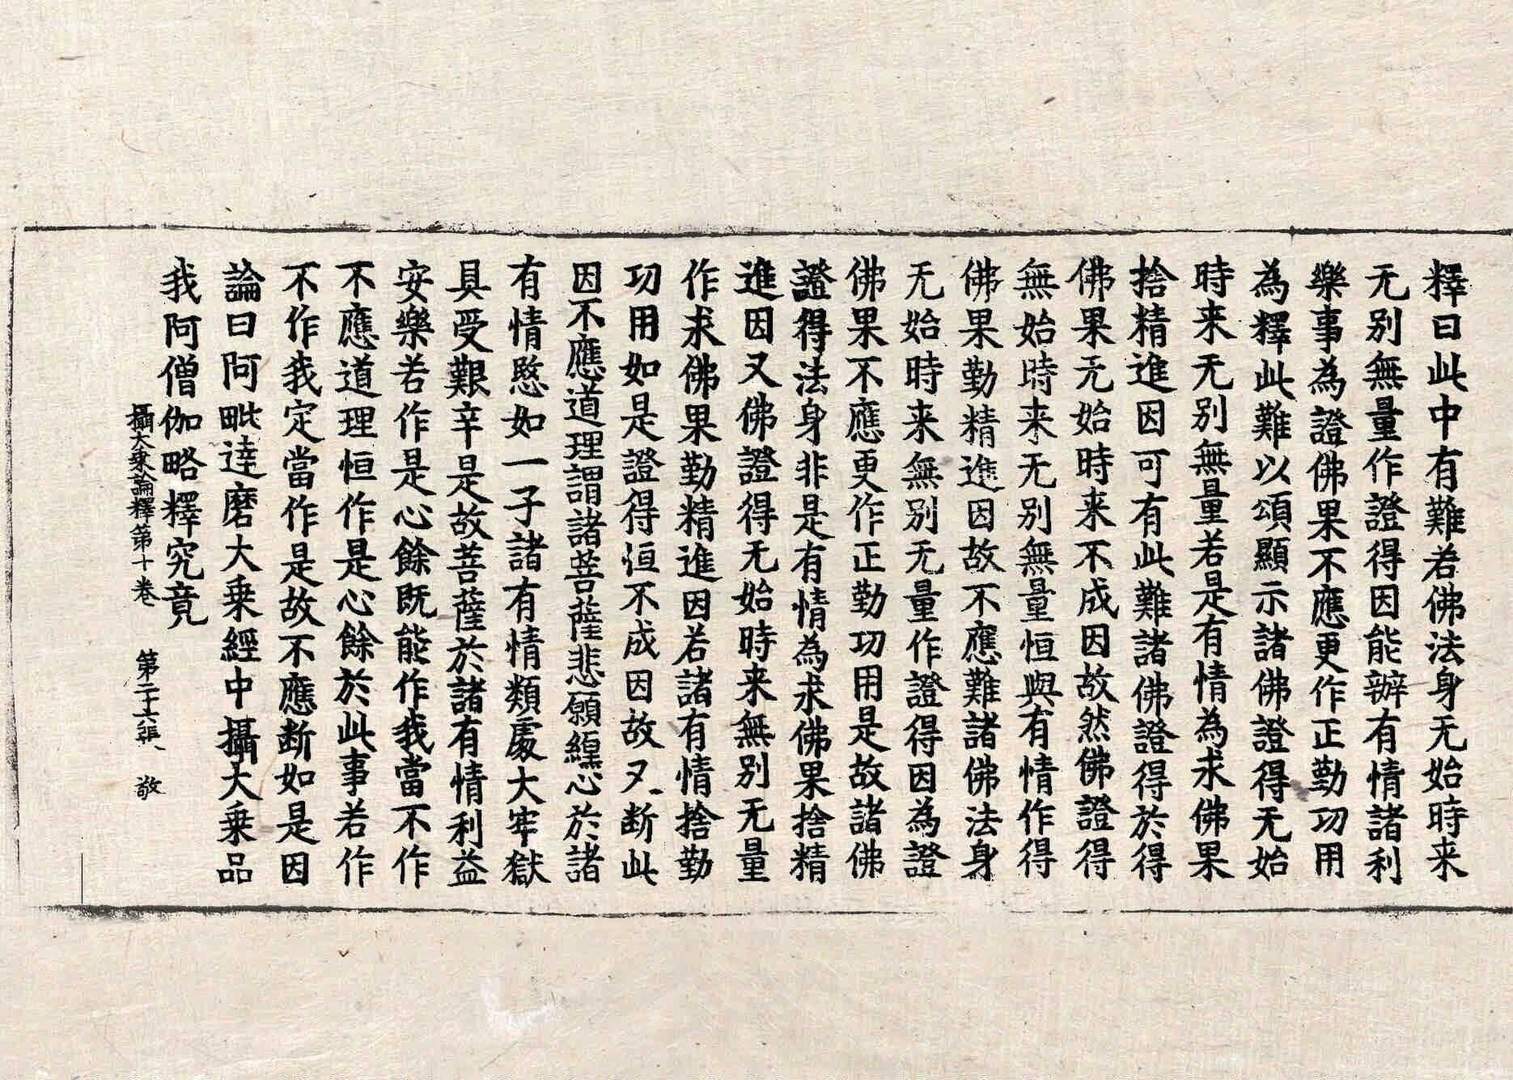 釋曰此中有難若佛法身无始時来
无别無量作證得因能辦有情諸利
樂事為證佛果不應更作正勤功用
為釋此難以頌顯示諸佛證得无始
時来无别無量若是有情為求佛果
捨精進因可有此難諸佛證得於得
佛果无始時来不成因故然佛證得
無始時来无别無量恒與有情作得
佛果勤精進因故不應難諸佛法身
无始時来無别无量作證得因為證
佛果不應更作正勤功用是故諸佛
證得法身非是有情為求佛果捨精
進因又佛證得无始時来無别无量
作求佛果勤精進因若諸有情捨勤
功用如是證得恒不成因故又断此
因不應道理謂諸菩薩悲願纏心於諸
有情愍如一子諸有情類處大牢獄
具受艱辛是故菩薩於諸有情利益
安樂若作是心餘既能作我當不作
不應道理恒作是心餘於此事若作
不作我定當作是故不應断如是因
論曰阿毗達磨大乗經中攝大乗品
我阿僧伽略釋究竟
攝大乗論釋第十卷 第二十六張 敬